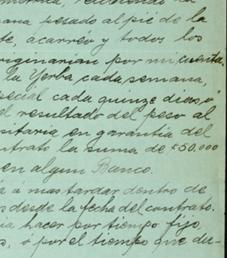 mana pesado al pié de la
te, acarreo y todos los
originarian por mi cuenta
la Yerba cada semana,
pecial cada quince dias, ó
el resultado del peso al
nitaria en garantía del
ntrato la suma de $50.000
en algun Banco.
á a mas tardar dentro de
s desde la fecha del contrato.
ia hacer por tiempo fijo,
s, ó por el tiempo que du-